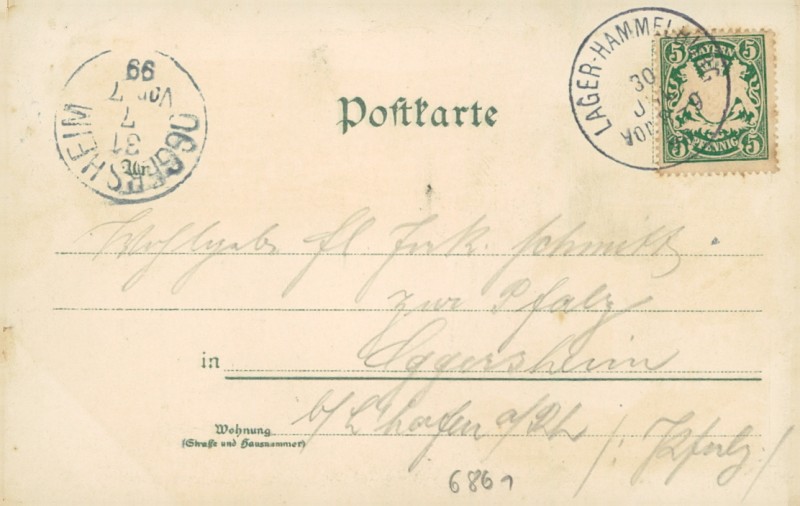 LAGER-HAMMELBURG
30
9
BAYERN
5 5
5 PFENNIG 5
OGGERSHEIM
31
7
Vor 7
99
Postkarte
Wohlgeb fl Frk. Schmitt
zur Pfalz
in Oggersheim
b/L'hafen a/Rh
/: Pfalz /
Wohnung
(Straße und Hausnummer)
6861